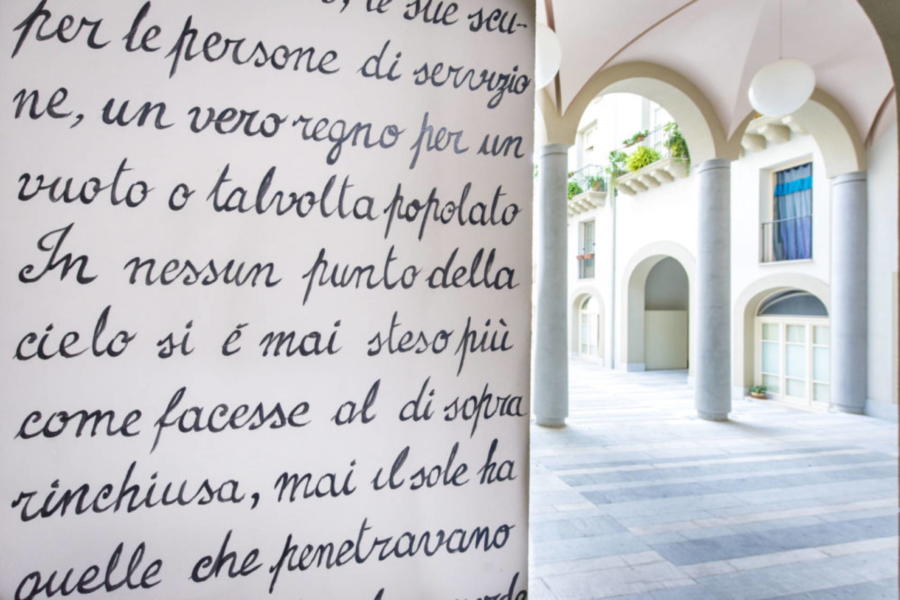 le sue scu-
per le persone di servizio
ne, un vero regno per un
vuoto o talvolta popolato
In nessun punto della
cielo si é mai steso più
come facesse al di sopra
rinchiusa, mai il sole ha
quelle che penetravano